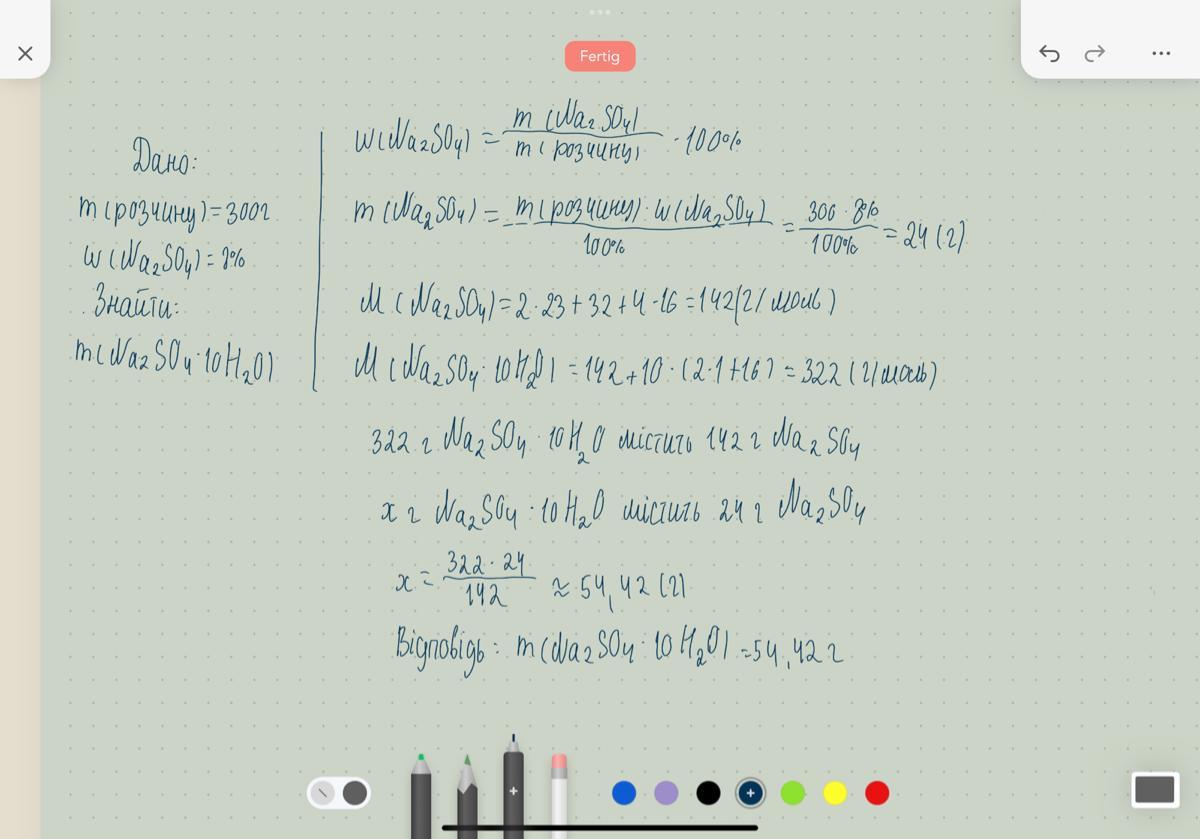 Fertig
Дано:
m(розчину)=300г
w(Na₂SO₄)=8%
Знайти:
m(Na₂SO₄·10H₂O)
w(Na₂SO₄) = m(Na₂SO₄) / m(розчину) · 100%
m(Na₂SO₄) = m(розчину)·w(Na₂SO₄) / 100% = 300·8% / 100% = 24(г)
M(Na₂SO₄)=2·23+32+4·16=142(г/моль)
M(Na₂SO₄·10H₂O)=142+10·(2·1+16)=322(г/моль)
322 г Na₂SO₄·10H₂O містить 142 г Na₂SO₄
x г Na₂SO₄·10H₂O містить 24 г Na₂SO₄
x = 322·24 / 142 ≈ 54,42(г)
Відповідь: m(Na₂SO₄·10H₂O)=54,42 г